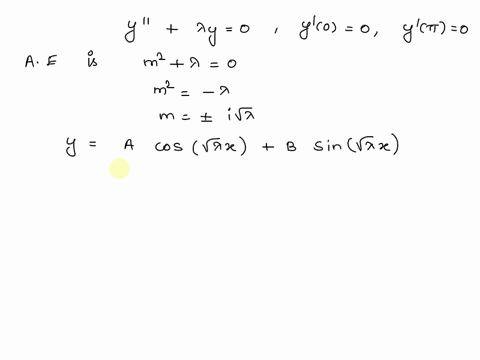 y'' + λy = 0 , y'(0) = 0, y'(π) = 0
A.E is m² + λ = 0
m² = -λ
m = ± i√λ
y = A cos(√λx) + B sin(√λx)